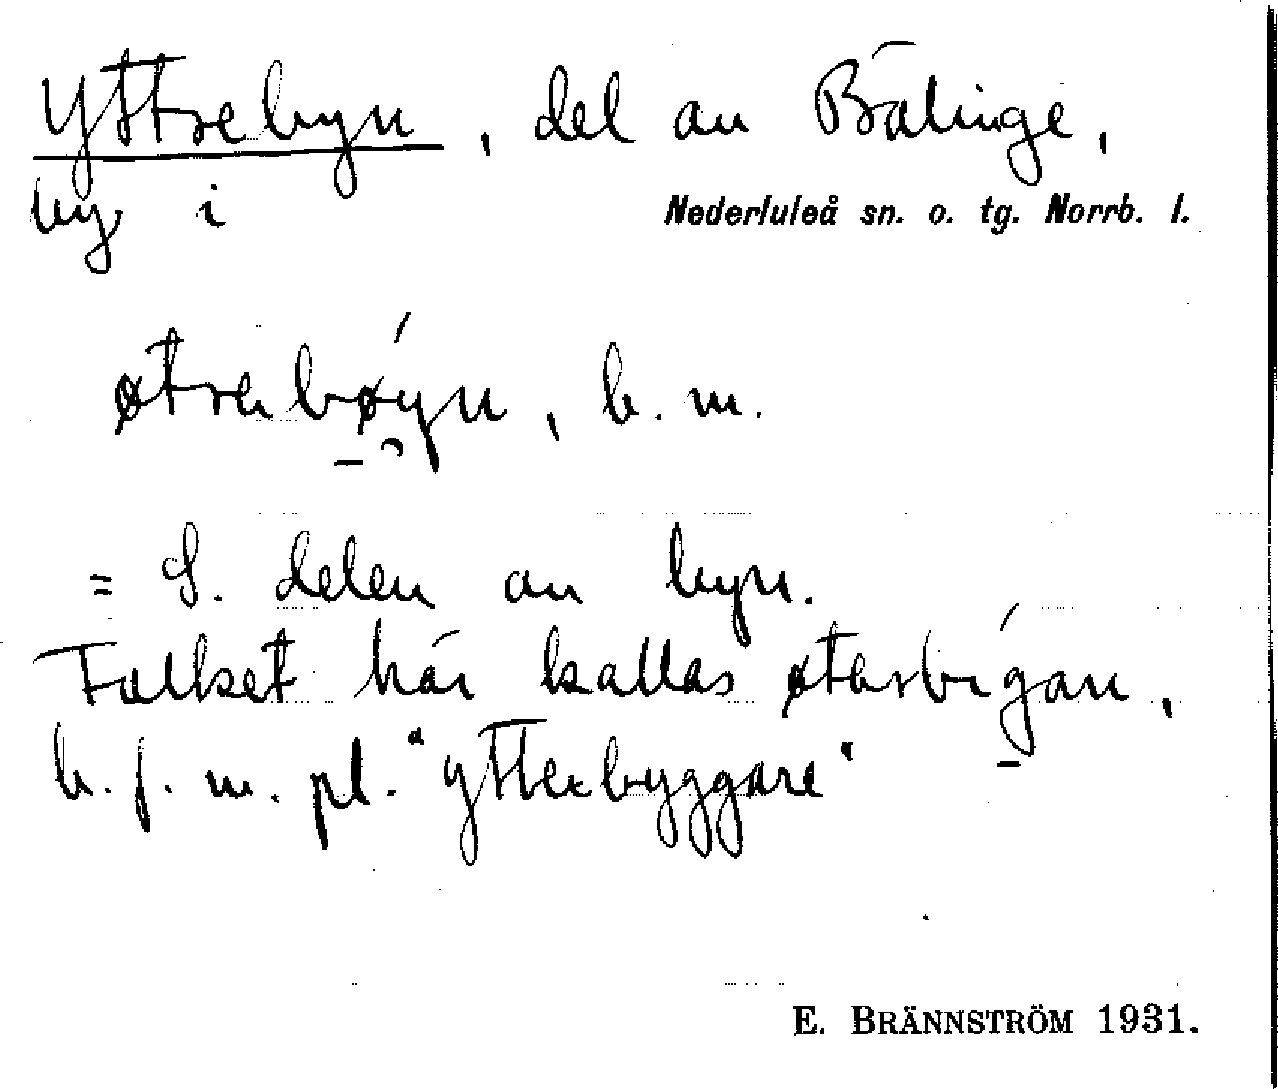 Yttrebyn, del av Bälinge,
by i Nederluleå sn. o. tg. Norrb. l.
øtrabøyn, b. m.
= S. delen av byn.
Folket här kallas øtərbigan,
b. f. m. pl. "ytterbyggare"
E. BRÄNNSTRÖM 1931.